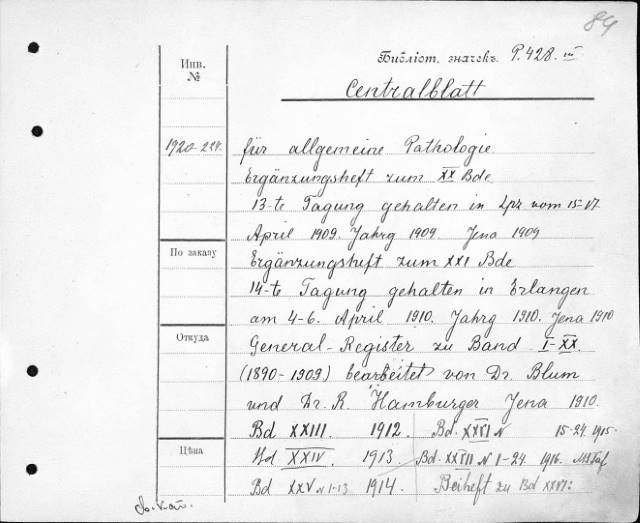 84
Инв. №
Библіот. значекъ P.428. III
Centralblatt
1920-224.
für allgemeine Pathologie
Ergänzungsheft zum XX Bde
13-te Tagung gehalten in Lpz vom 15-17.
April 1909. Jahrg 1909. Jena 1909
По заказу
Ergänzungsheft zum XXI Bde
14-te Tagung gehalten in Erlangen
am 4-6. April 1910. Jahrg 1910. Jena 1910
Откуда
General-Register zu Band I-XX.
(1890-1909) bearbeitet von Dr. Blum
und Dr. R. Hamburger Jena 1910.
Bd XXIII. 1912. Bd. XXVI N 15-24. 1915.
Цѣна
Bd XXIV. 1913. Bd. XXVII N 1-24. 1916.
Bd XXV N 1-13 1914. Beiheft zu Bd XXVI: